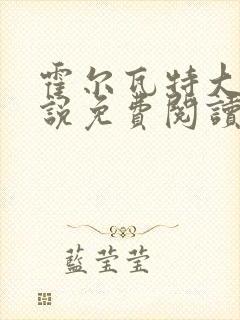 霍尔瓦特大
說免費閱讀
藍莹莹